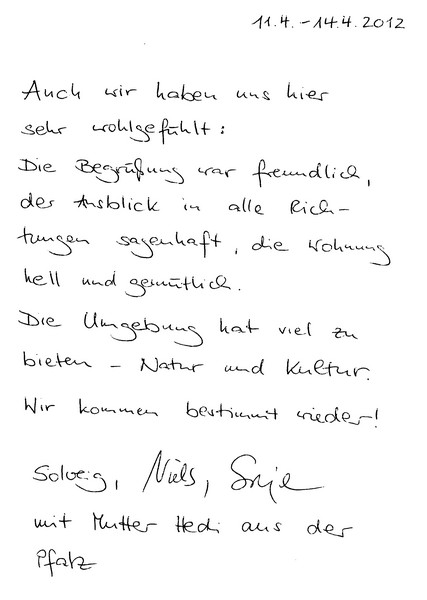 11.4. - 14.4. 2012
Auch wir haben uns hier
sehr wohlgefühlt:
Die Begrüßung war freundlich,
der Ausblick in alle Rich-
tungen sagenhaft, die Wohnung
hell und gemütlich.
Die Umgebung hat viel zu
bieten - Natur und Kultur.
Wir kommen bestimmt wieder!
Solveig, Niels,
mit Mutter Hedi aus der
Pfalz